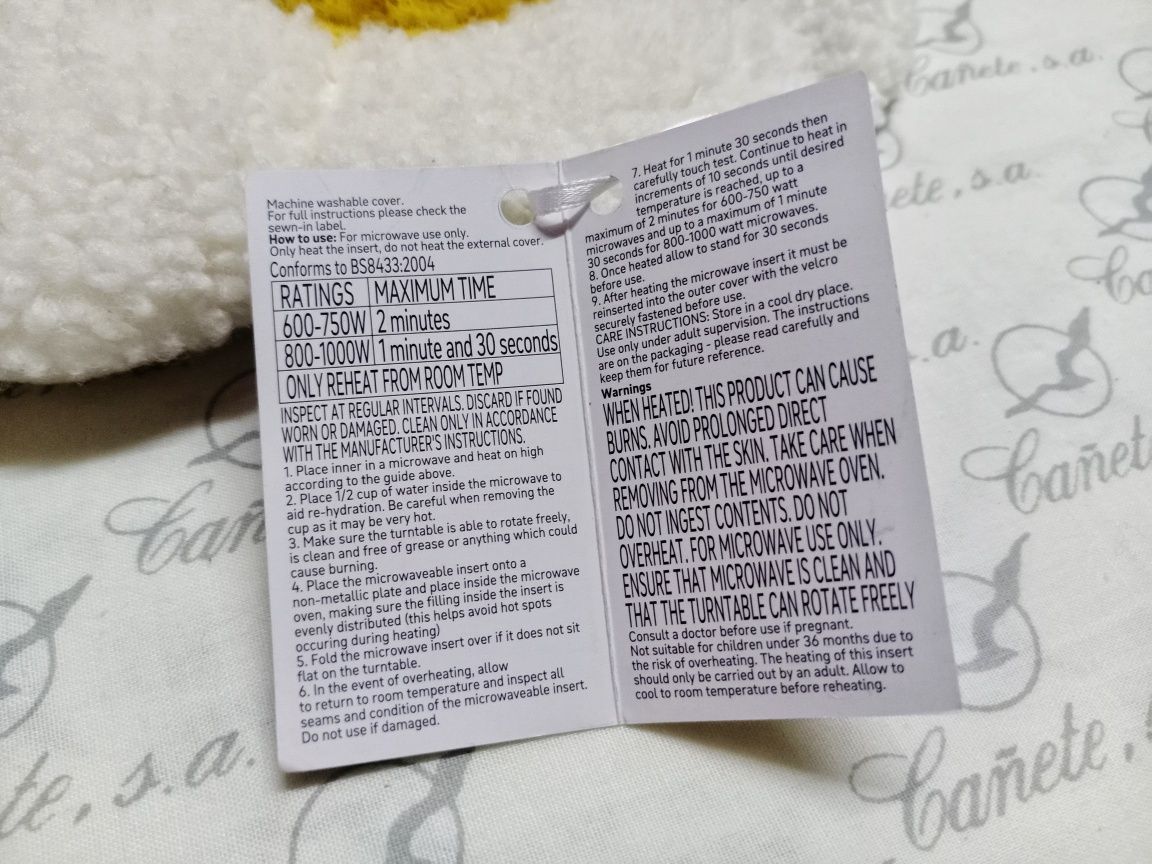 Machine washable cover.
For full instructions please check the
sewn-in label.
How to use: For microwave use only.
Only heat the insert, do not heat the external cover.
Conforms to BS8433:2004
RATINGS MAXIMUM TIME
600-750W 2 minutes
800-1000W 1 minute and 30 seconds
ONLY REHEAT FROM ROOM TEMP
INSPECT AT REGULAR INTERVALS. DISCARD IF FOUND
WORN OR DAMAGED. CLEAN ONLY IN ACCORDANCE
WITH THE MANUFACTURER'S INSTRUCTIONS.
1. Place inner in a microwave and heat on high
according to the guide above.
2. Place 1/2 cup of water inside the microwave to
aid re-hydration. Be careful when removing the
cup as it may be very hot.
3. Make sure the turntable is able to rotate freely,
is clean and free of grease or anything which could
cause burning.
4. Place the microwaveable insert onto a
non-metallic plate and place inside the microwave
oven, making sure the filling inside the insert is
evenly distributed (this helps avoid hot spots
occuring during heating)
5. Fold the microwave insert over if it does not sit
flat on the turntable.
6. In the event of overheating, allow
to return to room temperature and inspect all
seams and condition of the microwaveable insert.
Do not use if damaged.
7. Heat for 1 minute 30 seconds then
carefully touch test. Continue to heat in
increments of 10 seconds until desired
temperature is reached, up to a
maximum of 2 minutes for 600-750 watt
microwaves and up to a maximum of 1 minute
30 seconds for 800-1000 watt microwaves.
8. Once heated allow to stand for 30 seconds
before use.
9. After heating the microwave insert it must be
reinserted into the outer cover with the velcro
securely fastened before use.
CARE INSTRUCTIONS: Store in a cool dry place.
Use only under adult supervision. The instructions
are on the packaging - please read carefully and
keep them for future reference.
Warnings
WHEN HEATED! THIS PRODUCT CAN CAUSE
BURNS. AVOID PROLONGED DIRECT
CONTACT WITH THE SKIN. TAKE CARE WHEN
REMOVING FROM THE MICROWAVE OVEN.
DO NOT INGEST CONTENTS. DO NOT
OVERHEAT. FOR MICROWAVE USE ONLY.
ENSURE THAT MICROWAVE IS CLEAN AND
THAT THE TURNTABLE CAN ROTATE FREELY
Consult a doctor before use if pregnant.
Not suitable for children under 36 months due to
the risk of overheating. The heating of this insert
should only be carried out by an adult. Allow to
cool to room temperature before reheating.
Cañete, s.a.
ete, s.a.
.a.
Cañete
Cañ
te, s.a.
Cañete, s